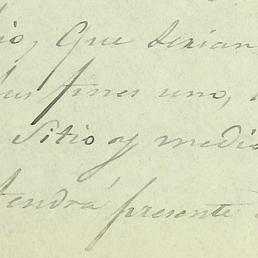 io, Que serian
fines uno,
Sitio y medi
tendrá presente